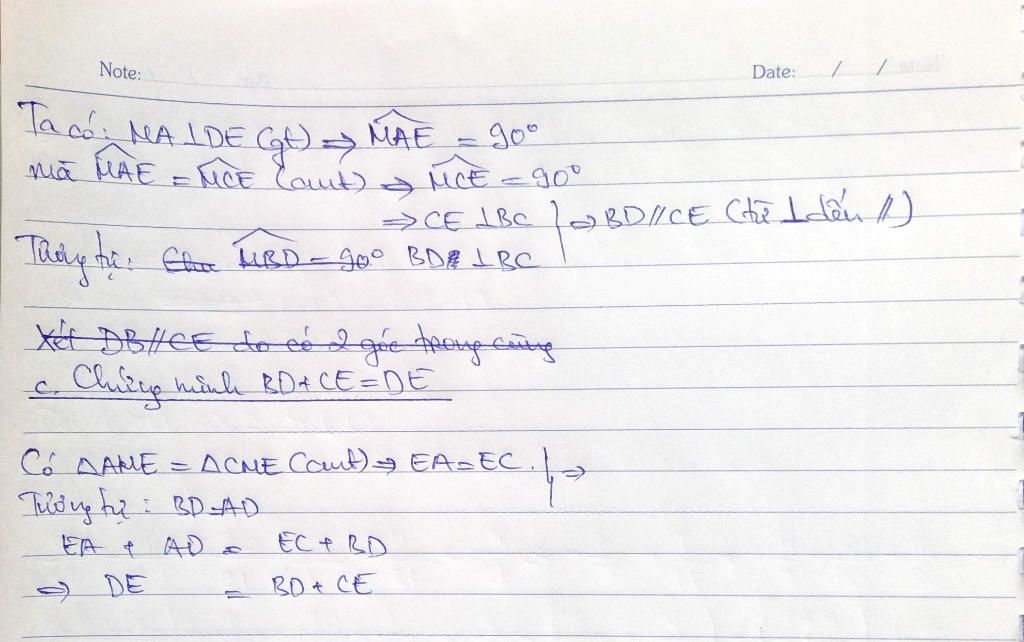 Note: Date: / /
Ta có: MA ⊥ DE (gt) ⇒ MAE = 90°
mà MAE = MCE (cmt) ⇒ MCE = 90°
⇒ CE ⊥ BC } ⇒ BD // CE (từ ⊥ đến //)
Tương tự: MBD = 90° BD ⊥ BC
Xét DB // CE do có 2 góc trong cùng
c. Chứng minh BD + CE = DE
Có ΔAME = ΔCME (cmt) ⇒ EA = EC. } ⇒
Tương tự: BD = AD
EA + AD = EC + BD
⇒ DE = BD + CE